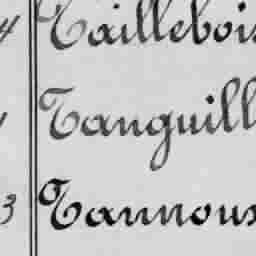 4 Taillebois
Tanguill
3 Tannoux